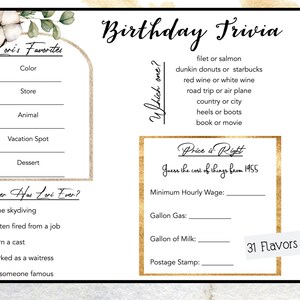 Birthday Trivia
Lori's Favorites
Color
Store
Animal
Vacation Spot
Dessert
Has Lori Ever?
skydiving
fired from a job
in a cast
as a waitress
someone famous
Which one?
filet or salmon
dunkin donuts or starbucks
red wine or white wine
road trip or air plane
country or city
heels or boots
book or movie
Price is Right
Guess the cost of things from 1955
Minimum Hourly Wage:
Gallon Gas:
Gallon of Milk:
Postage Stamp:
31 Flavors